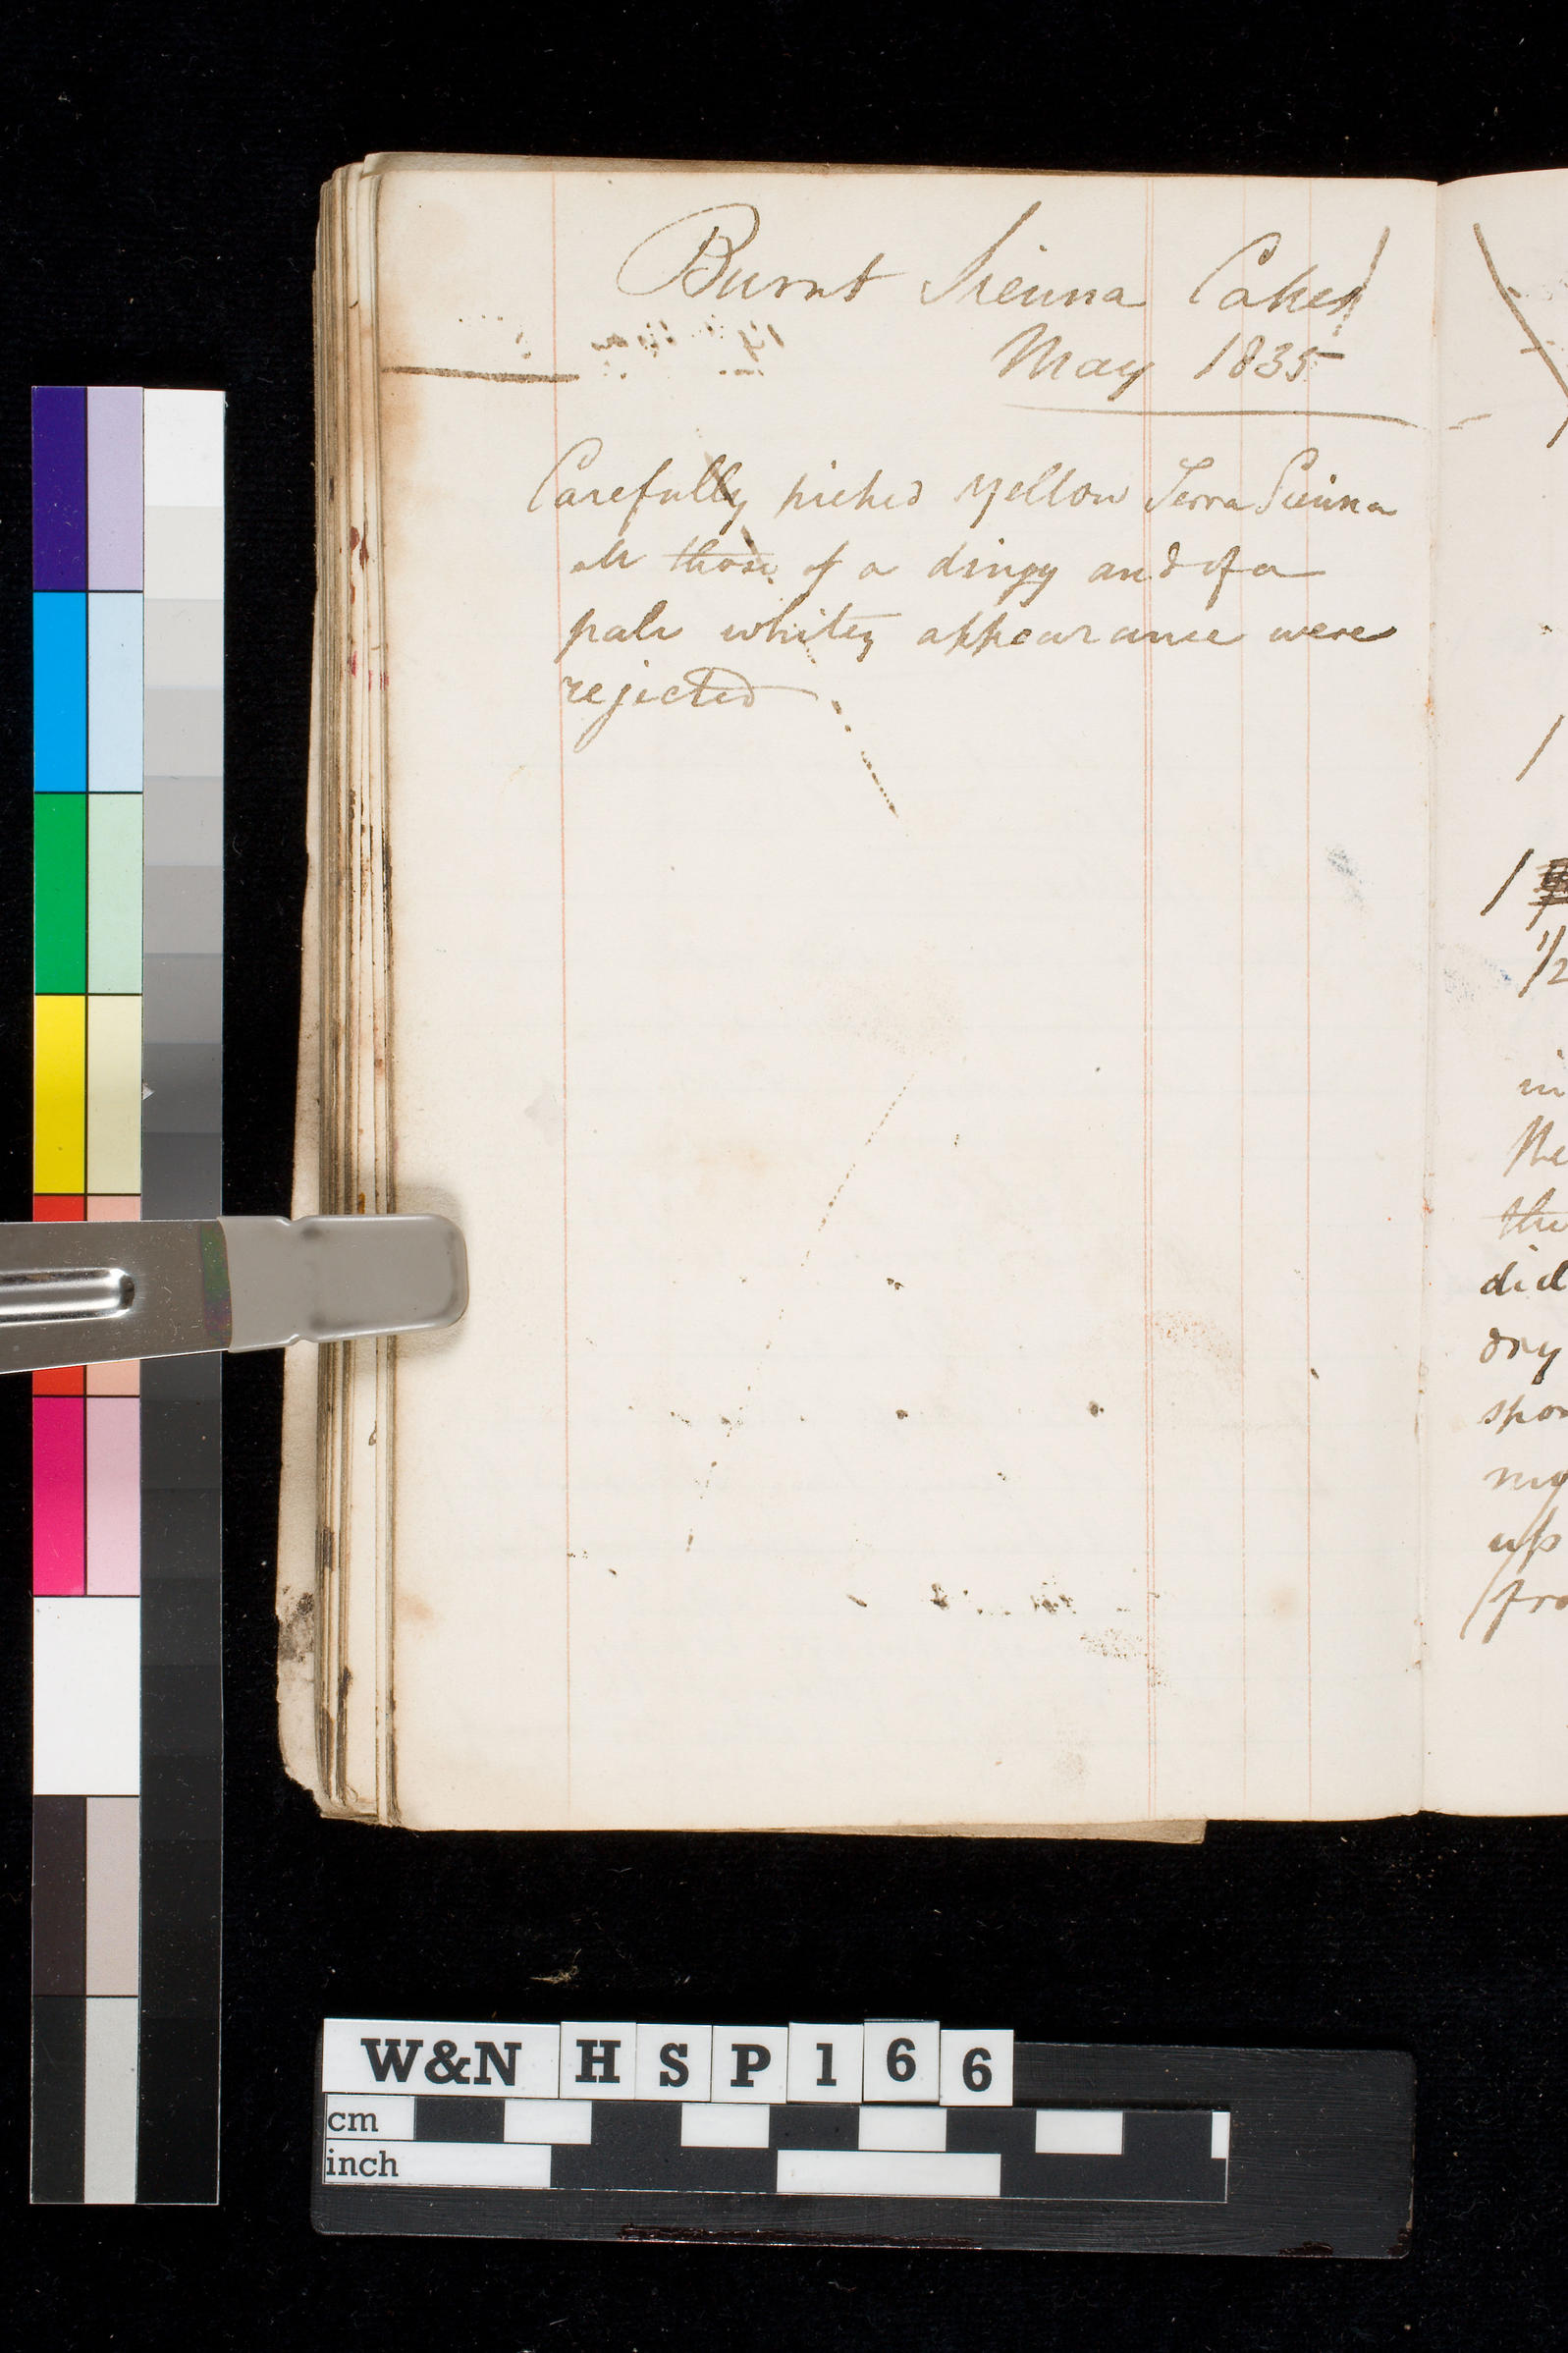 Burnt Sienna Cakes
May 1835
Carefully picked Yellow Terra Sienna
all those of a dingy and of a
pale whitey appearance were
rejected
1
1
1/2
in
the
the
did
dry
spon
nig
up
fro
W&N HSP166
cm
inch